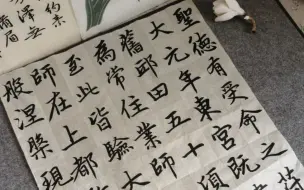 聖德有受命之
大元年東宮既
舊邸田五十頃
為常住業師
至此皆驗大
師在上都
般涅槃現